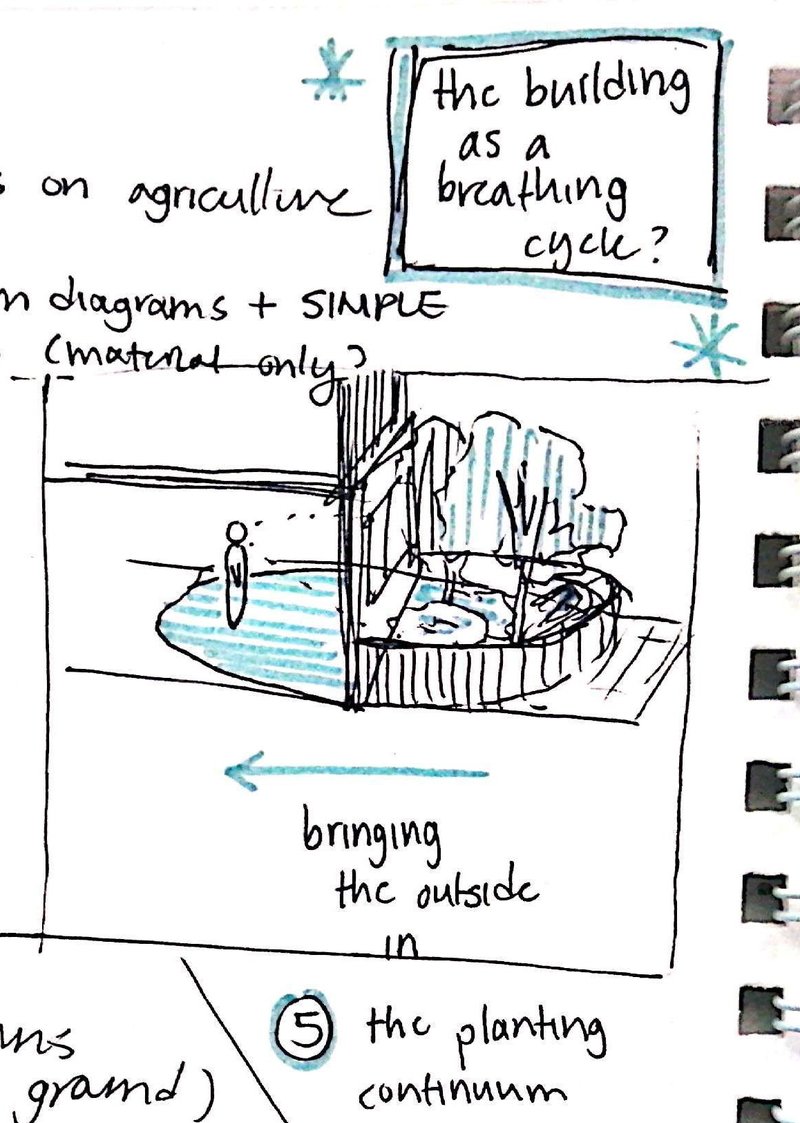 the building
as a
breathing
cycle?
on agriculture
diagrams + SIMPLE
(material only)
bringing
the outside
in
5 the planting
continuum
ground)